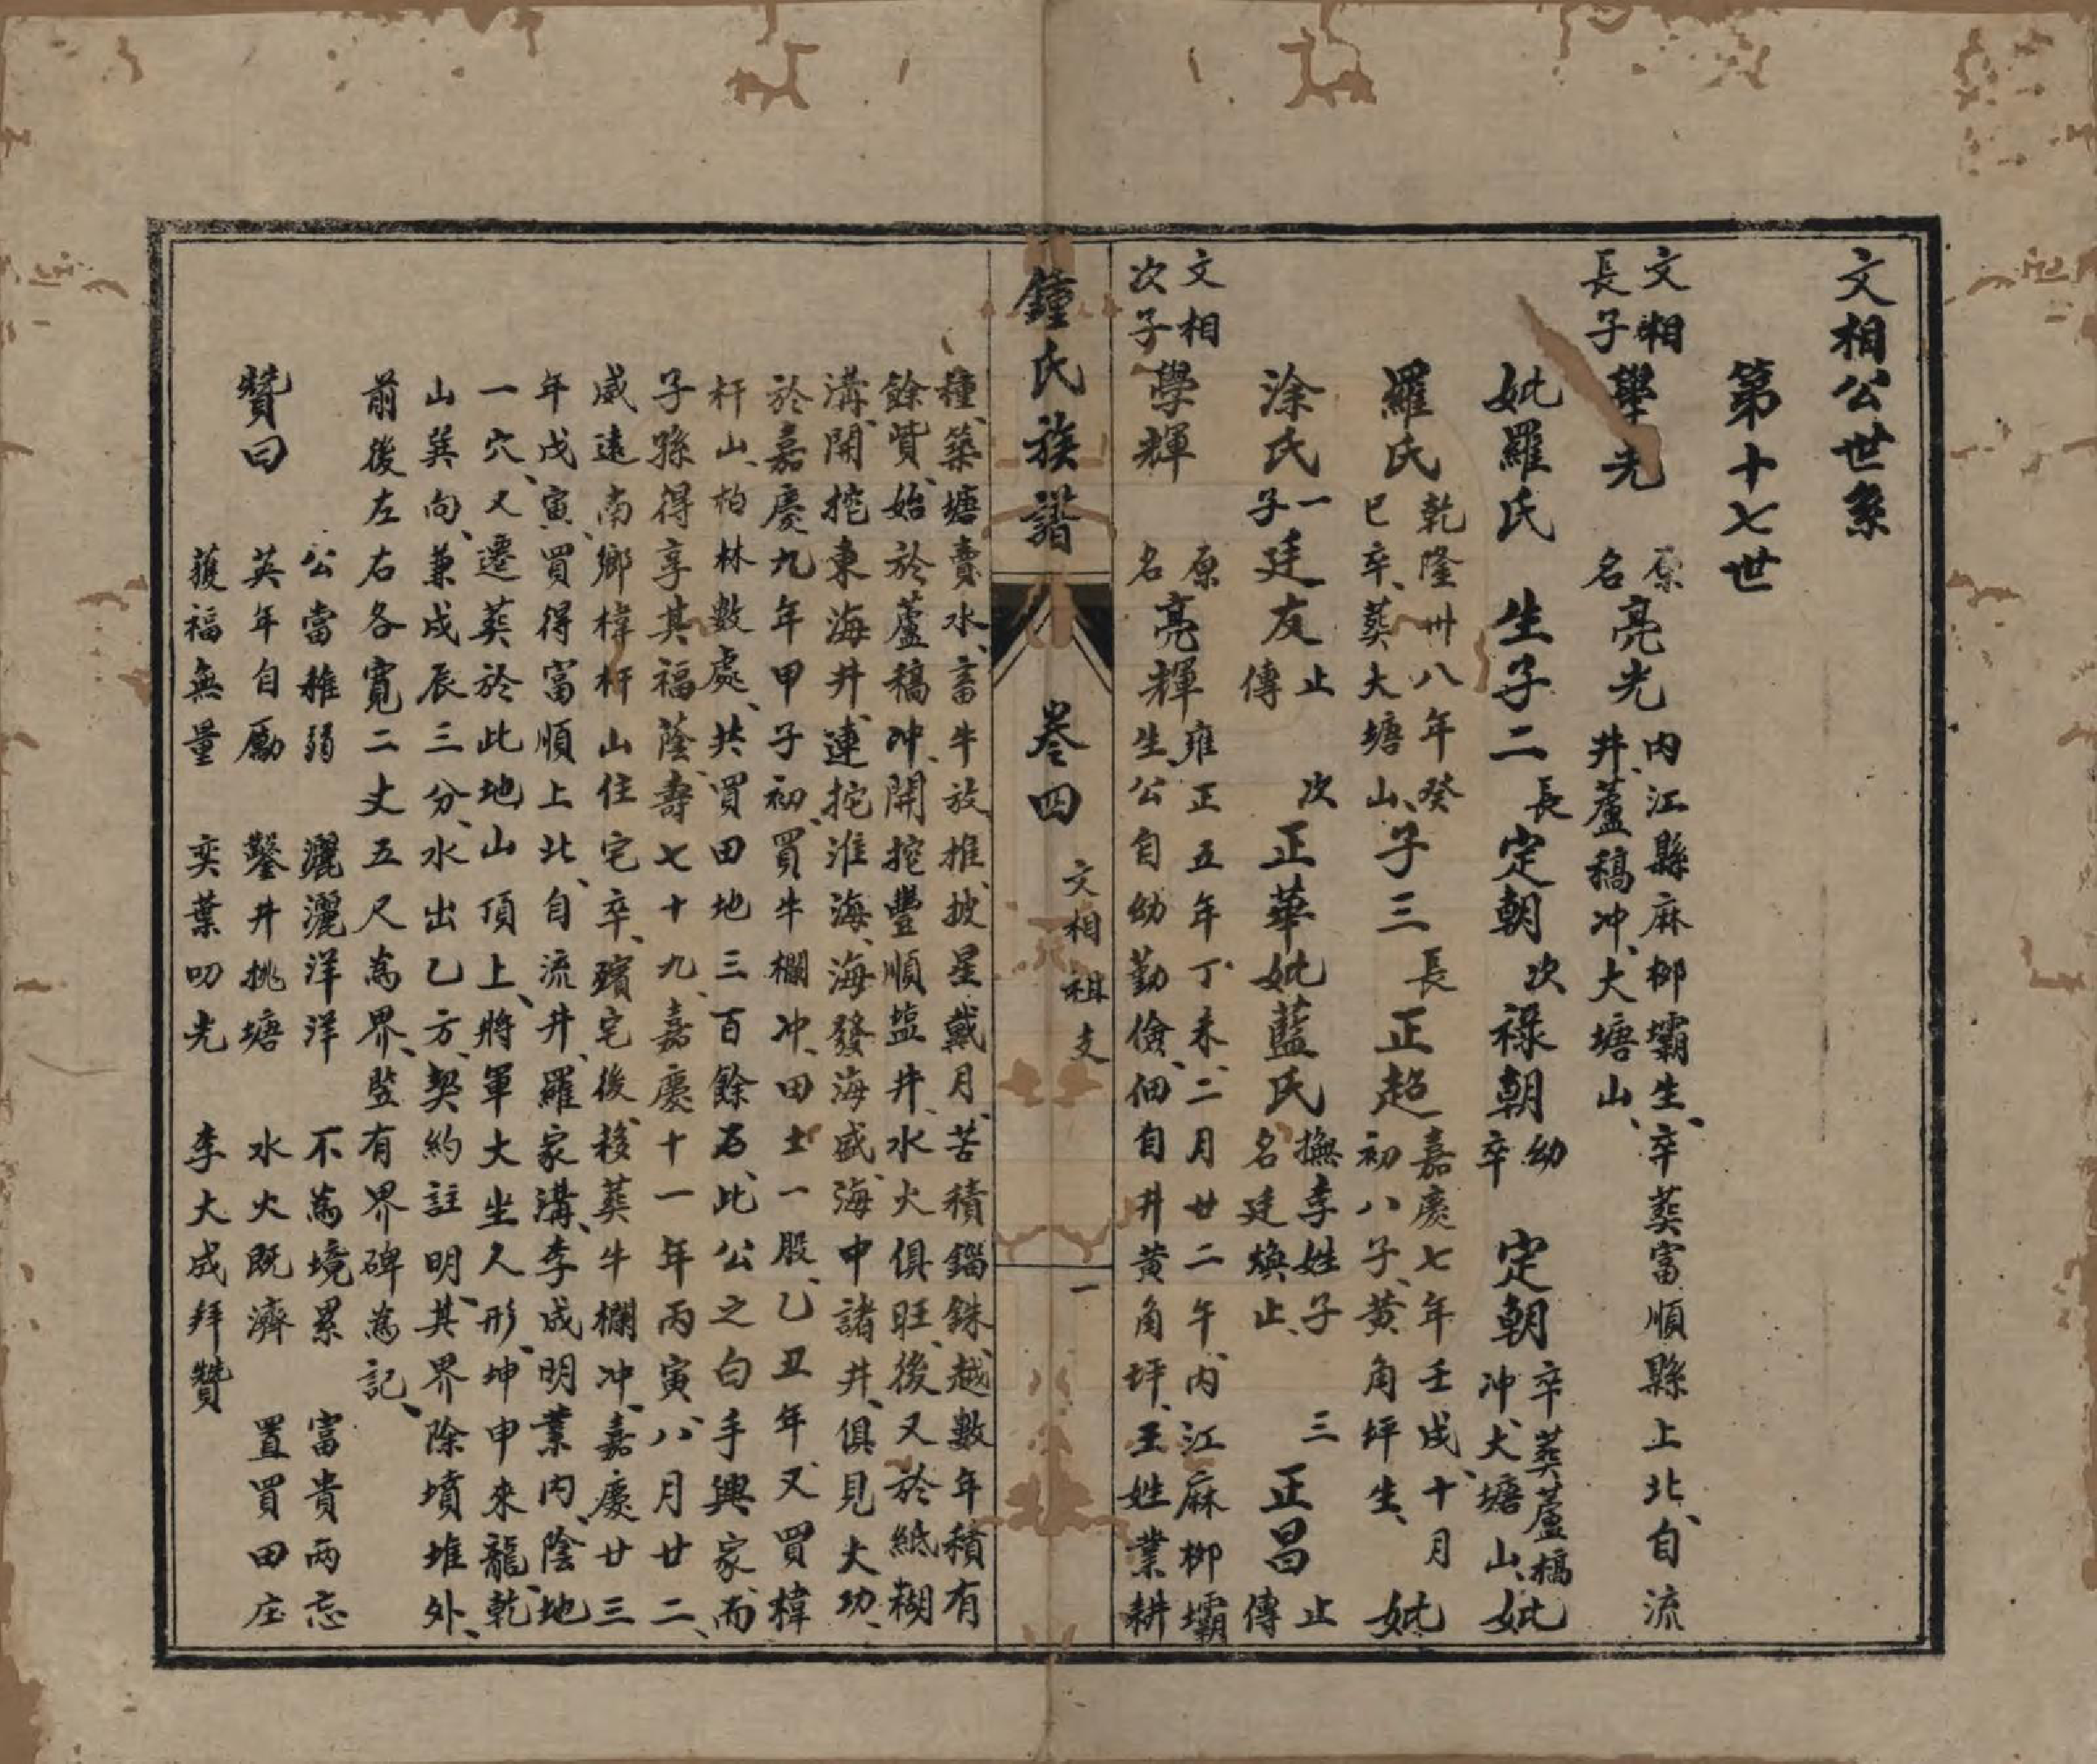 文相公世系
第十七世
文相
長子
學光
原
名
亮光
内江縣麻柳壩生、卒葬富順縣上北、自流
井、蘆稿冲、大塘山、
妣羅氏 生子二 長定朝 次祿朝 幼卒 定朝 卒葬蘆稿
冲、大塘山、妣
羅氏 乾隆卅八年癸
巳卒、葬大塘山、子三 長正超 嘉慶七年壬戌、十月
初八子、黄角坪生、妣
涂氏 一子廷友 止傳 次正華妣藍氏 撫李姓子
名廷煥止、 三正昌 止傳
文相
次子
學輝
原
名
亮輝
雍正五年丁未、二月廿二午、内江麻柳壩
生、公自幼勤儉、佃自井黄角坪、王姓業耕
鍾氏族譜 卷四 文相祖支 一
種、築塘賣水、畜牛放推、披星戴月、苦積錙銖、越數年積有
餘貲、始於蘆稿冲、開挖豐順塩井、水火俱旺、後又於紙糊
溝、開挖東海井、連挖淮海、海發海盛、海中諸井、俱見大功、
於嘉慶九年甲子初、買牛欄冲、田土一股、乙丑年、又買樟
杆山、柏林數處、共買田地三百餘石、此公之白手興家、而
子孫得享其福蔭、壽七十九、嘉慶十一年丙寅、八月廿二、
威遠南鄉樟杆山住宅卒、殯宅後、移葬牛欄冲、嘉慶廿三
年戊寅、買得富順上北、自流井、羅家溝、李成明業内、陰地
一穴、又遷葬於此地山頂上、將軍大坐人形、坤申來龍、乾
山巽向、兼戌辰三分、水出乙方、契約註明、其界除墳堆外、
前後左右各寬二丈五尺為界、監有界碑為記、
贊曰
公當稚弱 灑灑洋洋 不為境累 富貴兩忘
英年自勵 鑿井挑塘 水火既濟 置買田庄
獲福無量 奕葉叨光 李大成拜贊